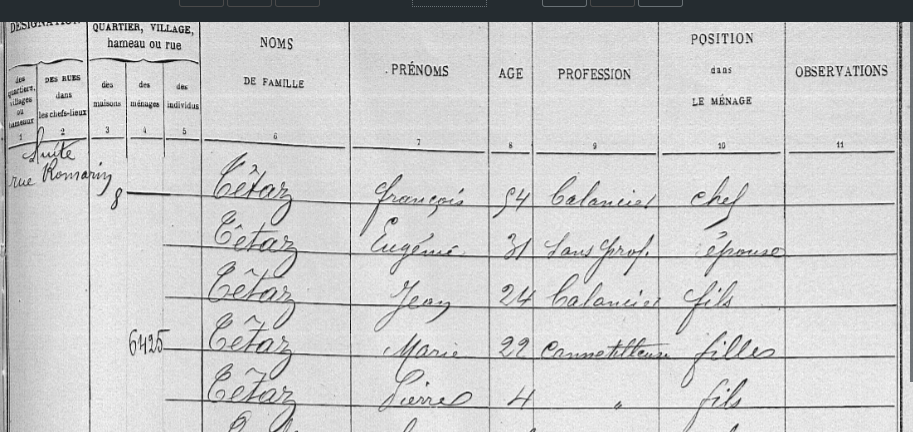 DÉSIGNATION
QUARTIER, VILLAGE,
hameau ou rue
des quartiers, villages ou hameaux
DES RUES dans les chefs-lieux
des maisons
des ménages
des individus
NOMS
DE FAMILLE
PRÉNOMS
AGE
PROFESSION
POSITION
dans
LE MÉNAGE
OBSERVATIONS
1 2 3 4 5 6 7 8 9 10 11
Suite
rue Romarin
8 Têtaz François 54 Balancier chef
Têtaz Eugénie 31 Sans prof. épouse
Têtaz Jean 24 Balancier fils
6425 Têtaz Marie 22 Cannetilleuse filles
Têtaz Pierre 4 " fils